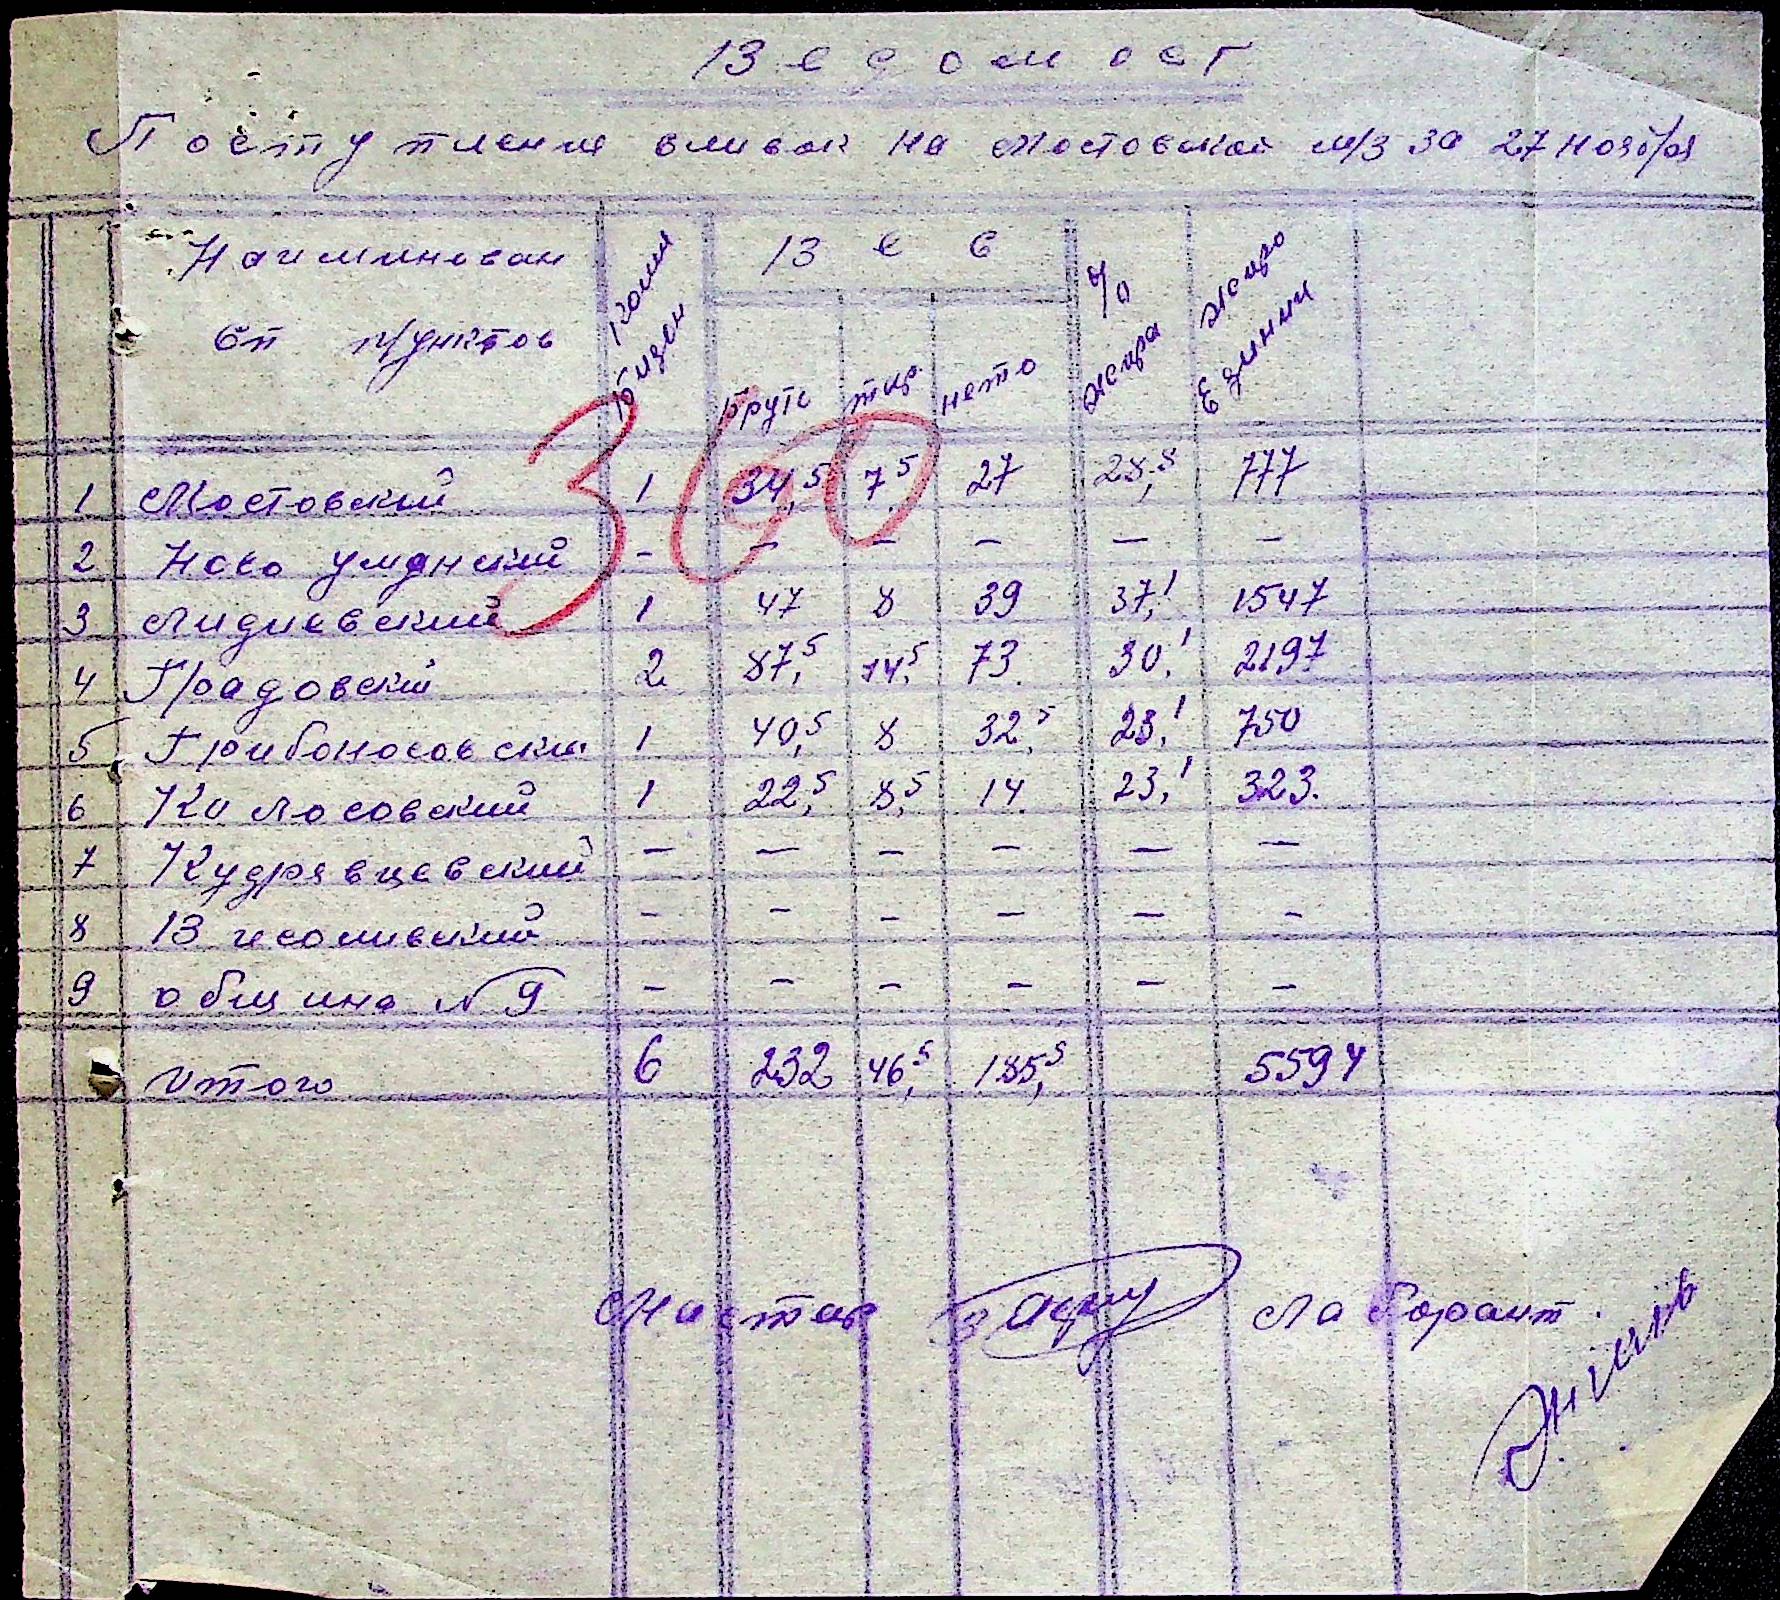 Ведомост
Поступление сливок на Мостовской м/з за 27 ноября
Наиминован
сп пунктов
Колич
бидон
Вес
Бруто
тар
нето
%
жира
жиро
Единиц
360
1 Мостовский 1 34,5 7,5 27 28,8 777
2 Ново уманский - - - - - -
3 Лидиевский 1 47 8 39 37,1 1547
4 Градовски 2 87,5 14,5 73. 30,1 2197
5 Грибоносовски 1 40,5 8 32,5 23,1 750
6 Ко лосовский 1 22,5 8,5 14 23,1 323.
7 Кудрявцевский - - - - - -
8 - - - - - -
9 община N 9 - - - - - -
итого 6 232 46,5 185,5 5594
Мастер Лаборант.